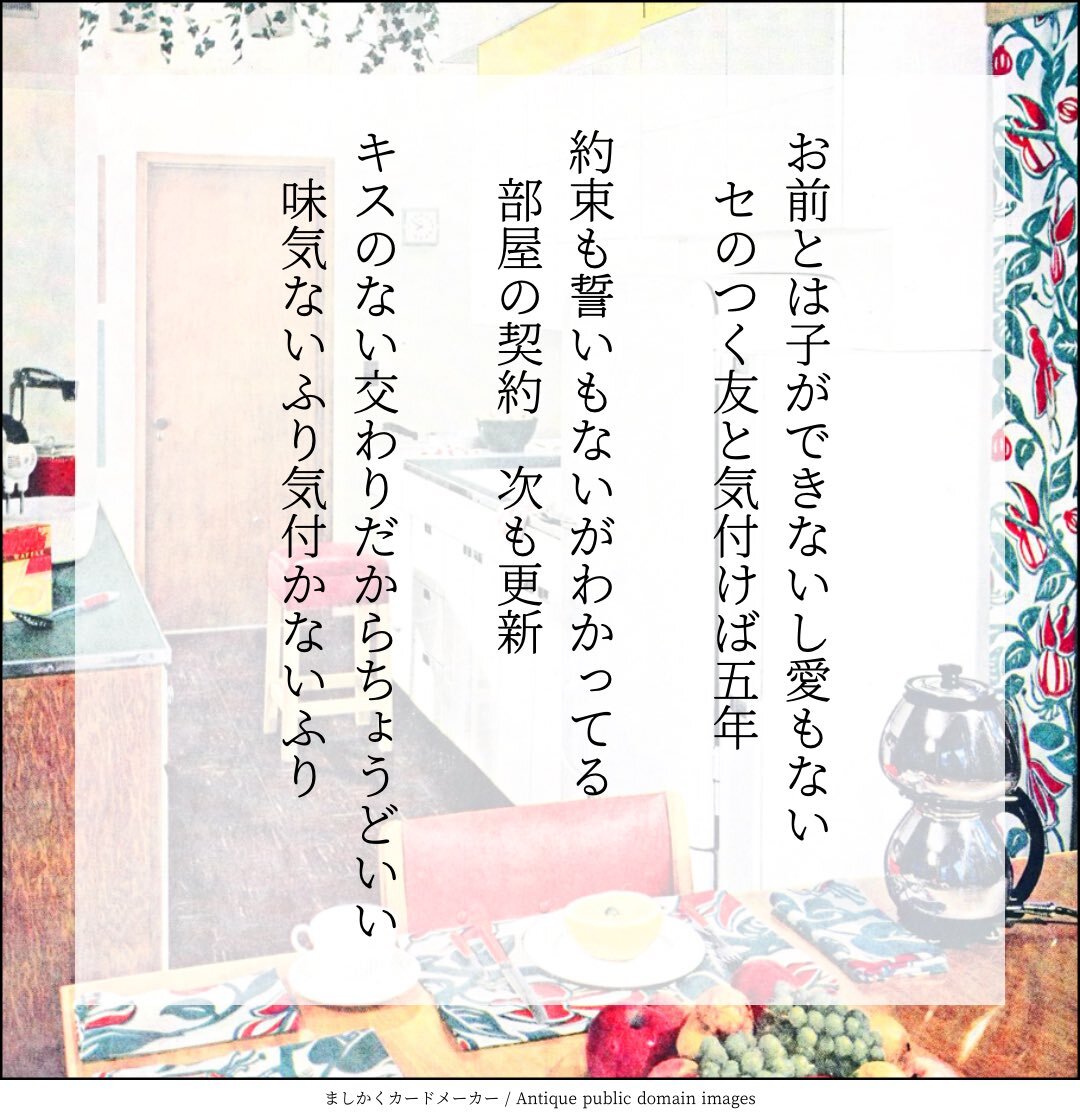 お前とは子ができないし愛もない
セのつく友と気付けば五年
約束も誓いもないがわかってる
部屋の契約　次も更新
キスのない交わりだからちょうどいい
味気ないふり気付かないふり
ましかくカードメーカー / Antique public domain images